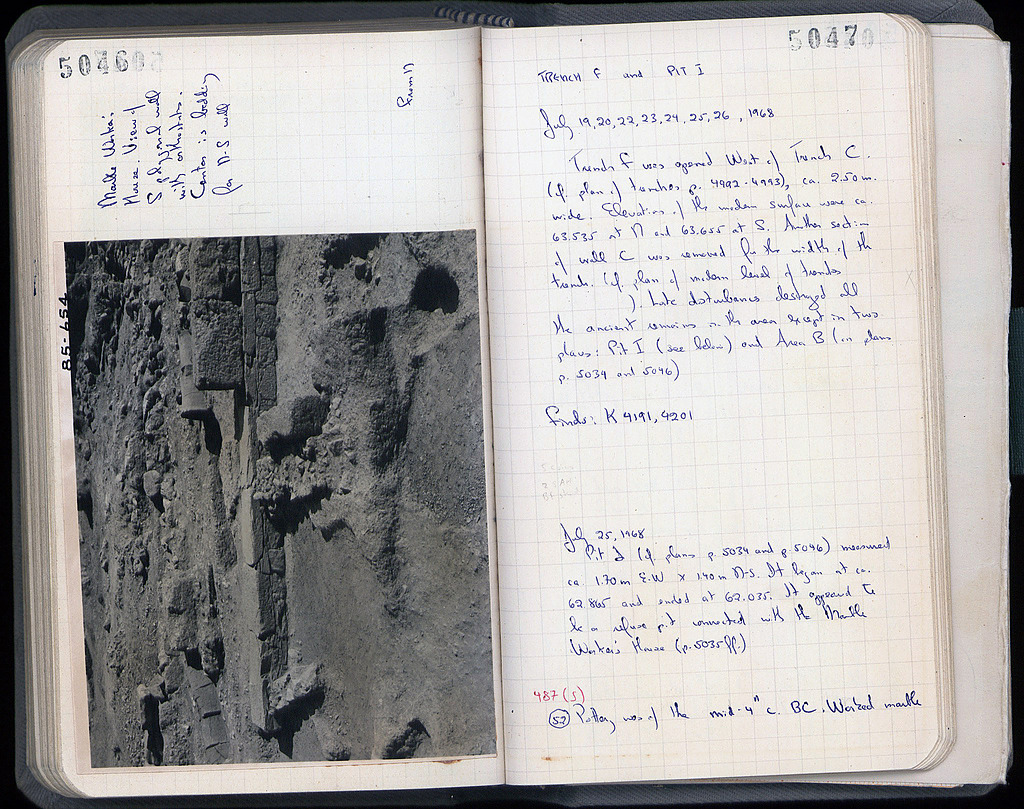 50460
Marble Worker's
House. View of
S polygonal wall
with orthostats.
Center is bedding
for N-S wall
From N
85-654
5047
TRENCH F and PIT I
July 19, 20, 22, 23, 24, 25, 26, 1968
Trench F was opened West of Trench C.
(cf. plan of trenches p. 4992-4993), ca. 2.50 m.
wide. Elevations of the modern surface were ca.
63.535 at N and 63.655 at S. Another section
of wall C was removed for the width of the
trench. (cf. plan of modern level of trenches
). Late disturbances destroyed all
the ancient remains in the area except in two
places: Pit I (see below) and Area B (on plans
p. 5034 and 5046)
Finds: K 4191, 4201
July 25, 1968
Pit I (cf. plans p. 5034 and p. 5046) measured
ca. 1.70 m E.W x 1.40 m N-S. It began at ca.
62.865 and ended at 62.035. It appeared to
be a refuse pit connected with the Marble
Worker's House (p. 5035 ff.)
487 (5)
52 Pottery was of the mid-4th c. BC. Worked marble